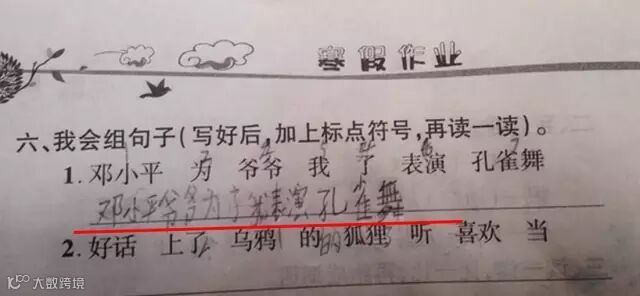 寒假作业
六、我会组句子(写好后,加上标点符号,再读一读)。
1. 邓小平 为 爷爷 我 了 表演 孔雀舞
邓小平爷爷为了我表演孔雀舞
2. 好话 上了 乌鸦 的 狐狸 听 喜欢 当
大数跨境